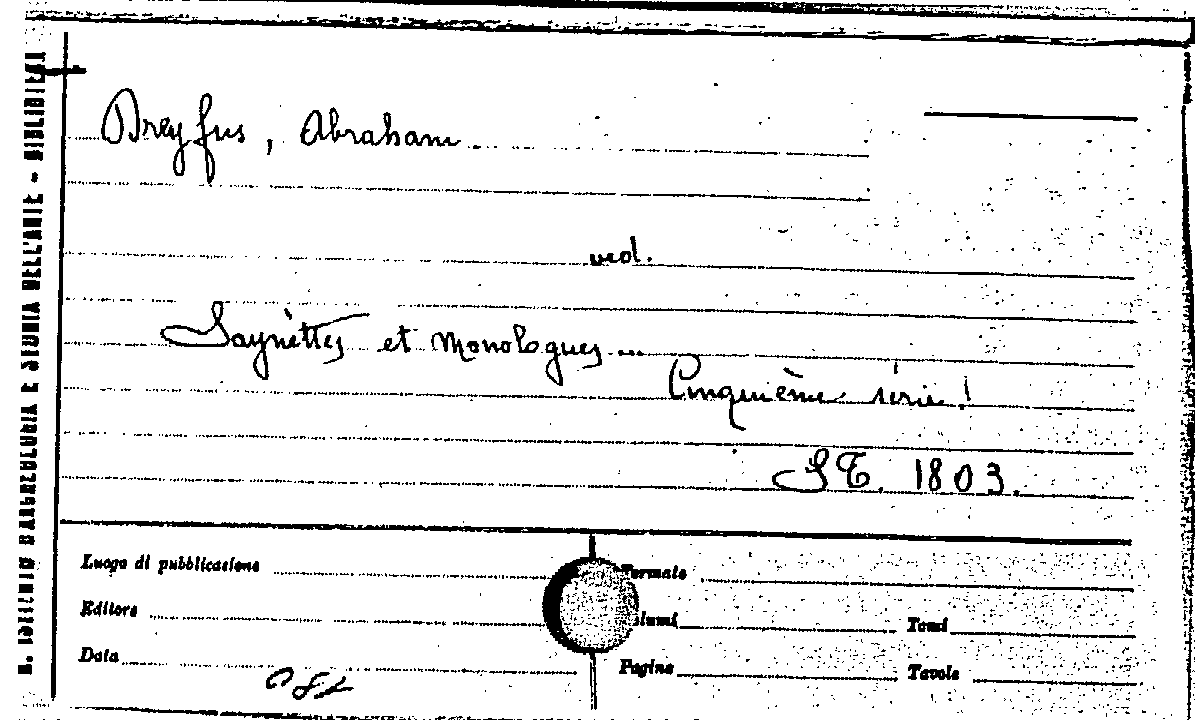 Dreyfus, Abraham
ved.
Saynètes et Monologues...
Cinquième série!
ST. 1803.
Luogo di pubblicazione
Formato
Editore
Tomi
Data
Pagine
Tavole
R. ISTITUTO D'ARCHEOLOGIA E STORIA DELL'ARTE - BIBLIOTECA